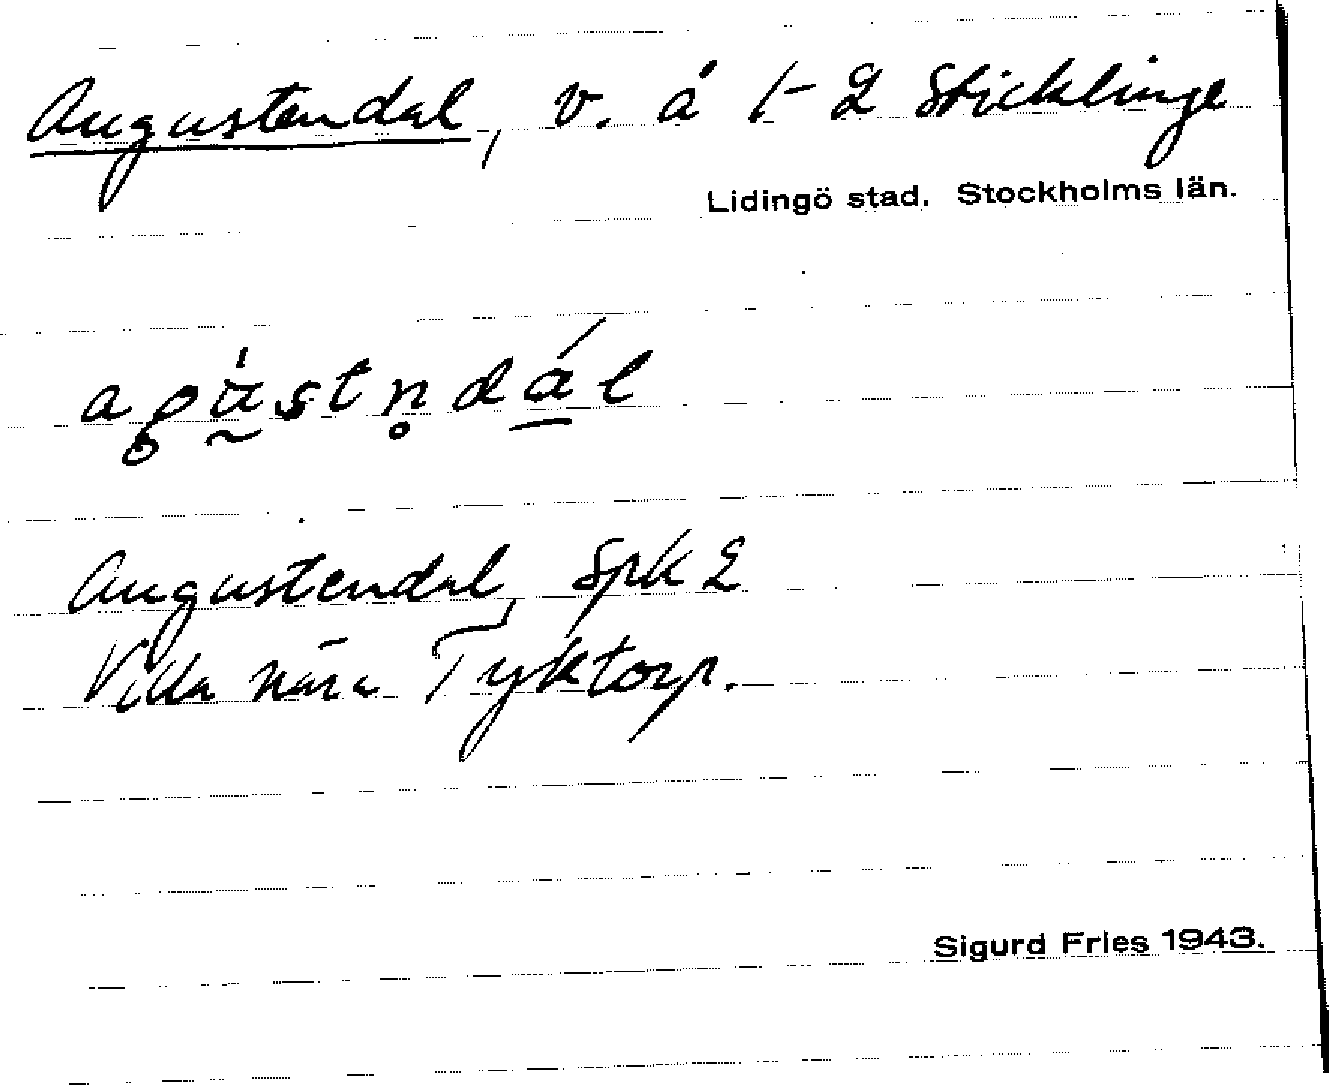 Augustendal, v. å 1-2 Sticklinge
Lidingö stad. Stockholms län.
agustn̥dál
Augustendal, Spk 2
Villa nära Tyktorp.
Sigurd Fries 1943.